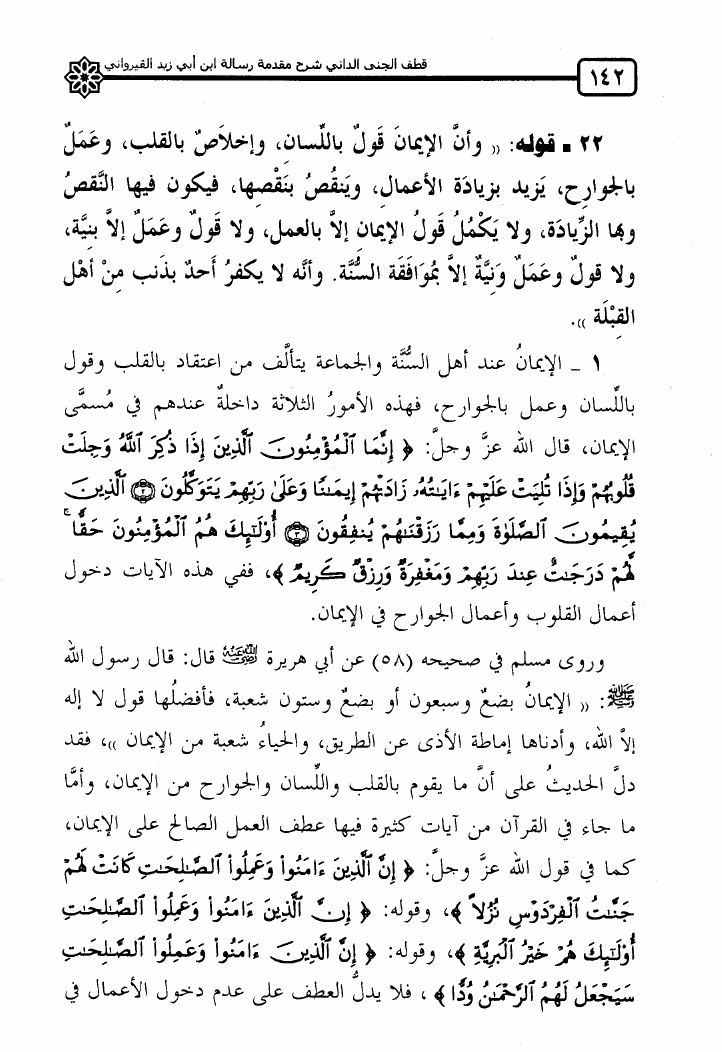 قطف الجنى الداني شرح مقدمة رسالة ابن أبي زيد القيرواني
١٤٢
٢٢ ـ قوله: (( وأنَّ الإيمانَ قَولٌ باللِّسانِ، وإخلاَصٌ بالقلبِ، وعَمَلٌ
بالجوارح، يَزيد بزيادَة الأعمالِ، ويَنقُصُ بنَقْصِها، فيكون فيها النَّقصُ
وبها الزِّيادَة، ولا يَكْمُلُ قَولُ الإيمانِ إلاَّ بالعمل، ولا قَولٌ وعَمَلٌ إلاَّ بنِيَّة،
ولا قولٌ وعَمَلٌ وَنِيَّةٌ إلاَّ بمُوَافَقَة السُّنَّة. وأنَّه لا يكفرُ أَحدٌ بذَنب مِنْ أهْل
القِبْلَة )).
١ ـ الإيمانُ عند أهل السُّنَّة والجماعة يتألَّف من اعتقاد بالقلب وقول
باللِّسان وعمل بالجوارح، فهذه الأمورُ الثلاثة داخلةٌ عندهم في مُسمَّى
الإيمان، قال الله عزَّ وجلَّ: ﴿ إِنَّمَا ٱلْمُؤْمِنُونَ ٱلَّذِينَ إِذَا ذُكِرَ ٱللَّهُ وَجِلَتْ
قُلُوبُهُمْ وَإِذَا تُلِيَتْ عَلَيْهِمْ ءَايَـٰتُهُۥ زَادَتْهُمْ إِيمَـٰنًا وَعَلَىٰ رَبِّهِمْ يَتَوَكَّلُونَ ۝٢ ٱلَّذِينَ
يُقِيمُونَ ٱلصَّلَوٰةَ وَمِمَّا رَزَقْنَـٰهُمْ يُنفِقُونَ ۝٣ أُوْلَـٰٓئِكَ هُمُ ٱلْمُؤْمِنُونَ حَقًّا ۚ
لَّهُمْ دَرَجَـٰتٌ عِندَ رَبِّهِمْ وَمَغْفِرَةٌ وَرِزْقٌ كَرِيمٌ ﴾، ففي هذه الآيات دخول
أعمال القلوب وأعمال الجوارح في الإيمان.
وروى مسلم في صحيحه (٥٨) عن أبي هريرة رضي الله عنه قال: قال رسول الله
ﷺ: (( الإيمانُ بضعٌ وسبعون أو بضعٌ وستون شعبة، فأفضلُها قول لا إله
إلاَّ الله، وأدناها إماطة الأذى عن الطريق، والحياءُ شعبة من الإيمان ))، فقد
دلَّ الحديثُ على أنَّ ما يقوم بالقلب واللِّسان والجوارح من الإيمان، وأمَّا
ما جاء في القرآن من آيات كثيرة فيها عطف العمل الصالح على الإيمان،
كما في قول الله عزَّ وجلَّ: ﴿ إِنَّ ٱلَّذِينَ ءَامَنُواْ وَعَمِلُواْ ٱلصَّـٰلِحَـٰتِ كَانَتْ لَهُمْ
جَنَّـٰتُ ٱلْفِرْدَوْسِ نُزُلاً ﴾، وقوله: ﴿ إِنَّ ٱلَّذِينَ ءَامَنُواْ وَعَمِلُواْ ٱلصَّـٰلِحَـٰتِ
أُوْلَـٰٓئِكَ هُمْ خَيْرُ ٱلْبَرِيَّةِ ﴾، وقوله: ﴿ إِنَّ ٱلَّذِينَ ءَامَنُواْ وَعَمِلُواْ ٱلصَّـٰلِحَـٰتِ
سَيَجْعَلُ لَهُمُ ٱلرَّحْمَـٰنُ وُدًّا ﴾ ، فلا يدلُّ العطف على عدم دخول الأعمال في